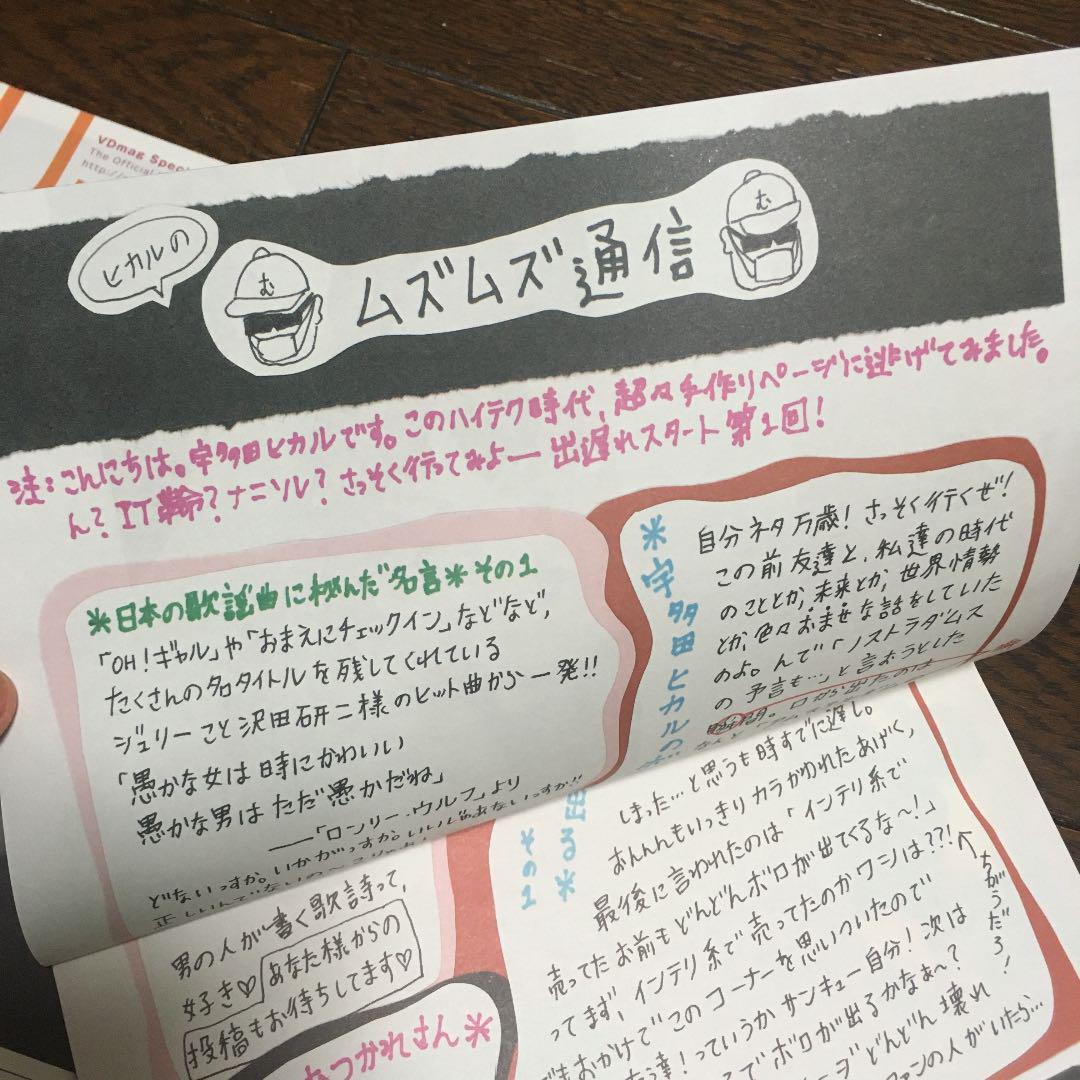 VDmag Speci
The Official
http://
ヒカルの
む
ムズムズ通信
む
注:こんにちは。宇多田ヒカルです。このハイテク時代、超々手作りページに逃げてみました。
ん?IT革命?ナニソレ?さっそく行ってみよー 出遅れスタート第1回!
*日本の歌謡曲に秘んだ名言* その1
「OH!ギャル」や「おまえにチェックイン」などなど、
たくさんの名タイトルを残してくれている
ジュリーこと沢田研二様のヒット曲から一発!!
「愚かな女は時にかわいい
愚かな男はただ愚かだね」
「ロンリー・ウルフ」より
男の人が書く歌詩って、
好き♡ あなた様からの
投稿もお待ちしてます♡
つかれさん*
*宇多田ヒカルの
出る*
その1
自分ネタ万歳!さっそく行くぜ!
この前友達と、私達の時代
のこととか、未来とか、世界情勢
とか、色々おませな話をしていた
のよ。んで「ノストラダムス
の予言も…」と言おうとした
瞬間。口から出たのは
しまった…と思うも時すでに遅し。
おんんもいっきりカラかわれたあげく、
最後に言われたのは「インテリ系で
売ってたお前もどんどんボロが出てくるな〜!」
ってまず、インテリ系で売ってたのかワシは??!
ちがうだろ!
でもおかげでこのコーナーを思いついたので
達!っていうかサンキュー自分!次は
でボロが出るかなぁ〜?
ージどんどん壊れ
ファンの人がいたら…